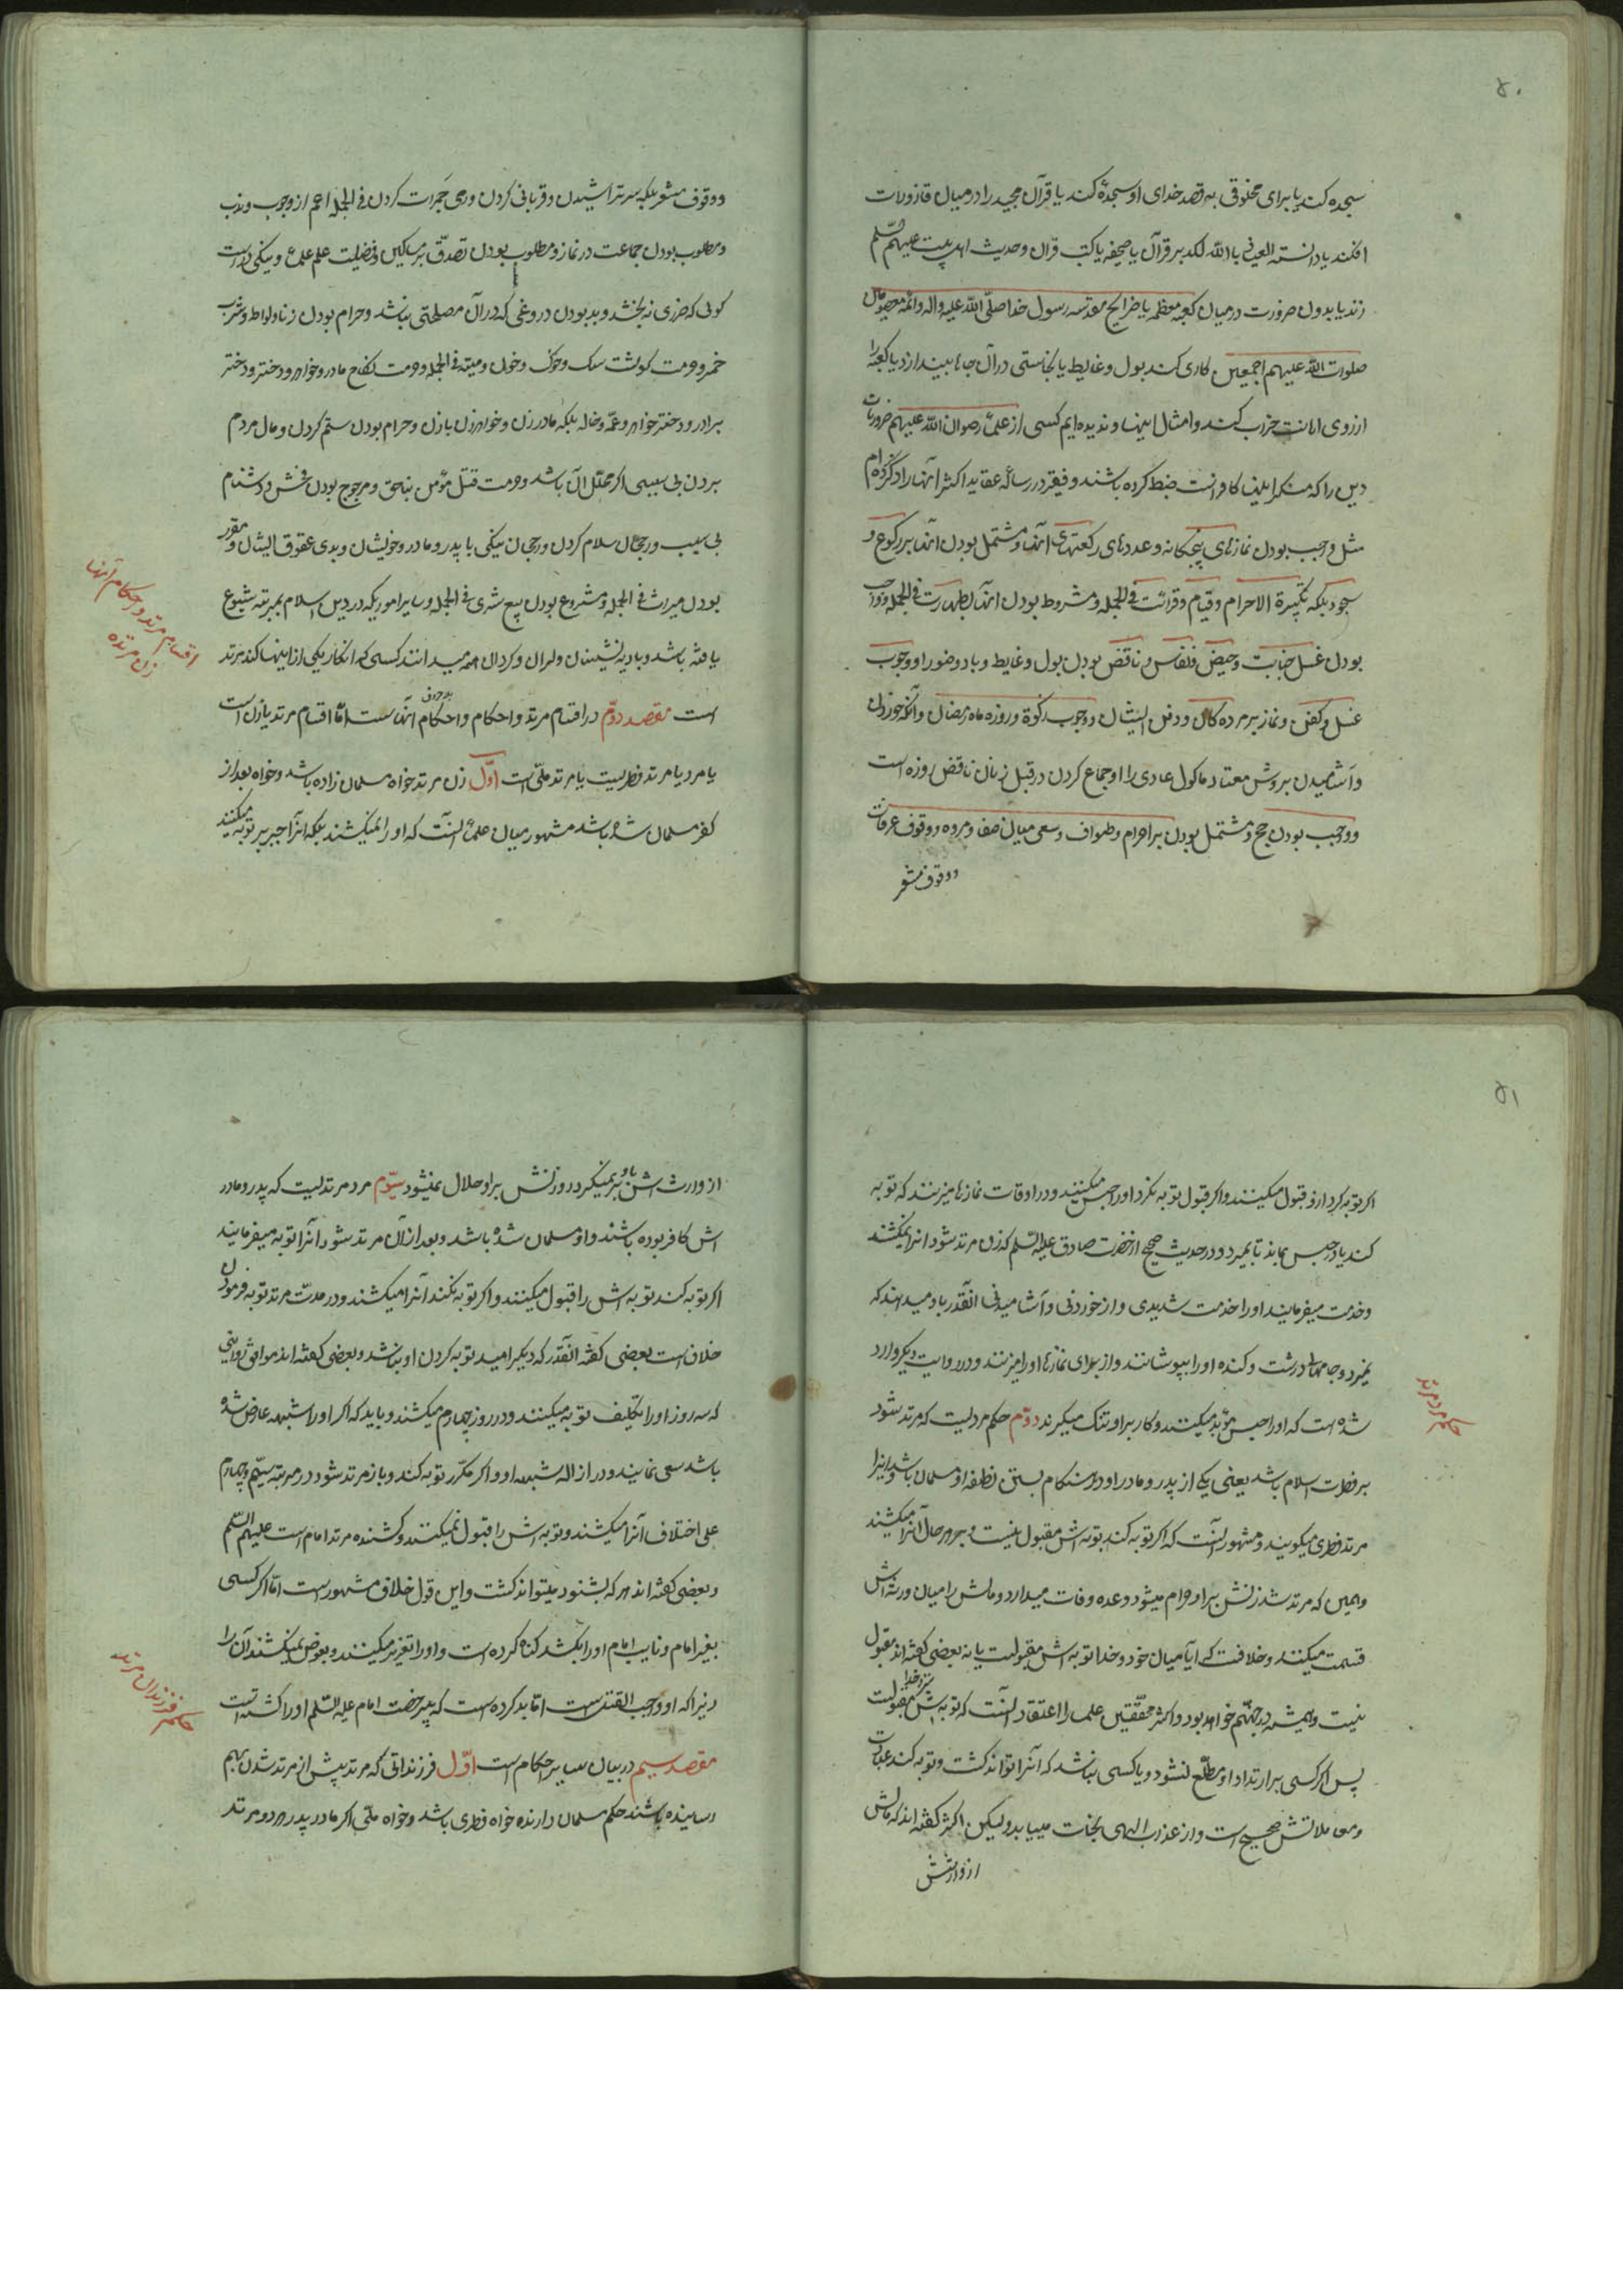 ۵۰
سجده کند یا برای مخلوقی به قصد خدای او سجده کند یا قرآن مجید را در میان قاذورات
افکند یا دانسته العیاذ بالله لکد بر قرآن یا صحیفه یا کتب قرآن و حدیث اهل بیت علیهم السّلم
زند یا بدون ضرورت در میان کعبه معظمه یا ضرایح مقدسه رسول خدا صلّی الله علیه واله وائمه معصومان
صلوات الله علیهم اجمعین کاری کند بول وغایط یا نجاستی در آن جا بیندازد یا کعبه را
از روی اهانت خراب کنند وامثال اینها وندیده ایم کسی از علماء رضوان الله علیهم ضروریات
دین را که منکر اینها کافر است ضبط کرده باشند وفقیر در رساله عقاید اکثر آنها را ذکر کرده ام
مثل واجب بودن نمازهای پنجکانه وعددهای رکعتهای آنها ومشتمل بودن آنها بر رکوع و
سجود بلکه تکبیرة الاحرام وقیام وقرائت فی الجمله ومشروط بودن انها بطهارت فی الجمله وواجب
بودن غسل جنابت وحیض ونفاس وناقض بودن بول وغایط وباد وضو را ووجوب
غسل وکفن ونماز بر مرده کان ودفن ایشان ووجوب زکوة وروزه ماه رمضان وآنکه خوردن
وآشامیدن بروش معتاد ماکول عادی را وجماع کردن در قبل زنان ناقض روزه است
وواجب بودن حج ومشتمل بودن بر احرام وطواف وسعی میان صفا ومروه ووقوف عرفات
ووقوف مشعر
ووقوف مشعر بلکه سر تراشیدن وقربانی کردن ورمی جمرات کردن فی الجمله اعم از وجوب وندب
ومطلوب بودن جماعت در نماز ومطلوب بودن تصدّق بر مساکین وفضیلت علم علماء ونیکی راست
کوئی که ضرری نه بخشد وبد بودن دروغی که در آن مصلحتی نباشد وحرام بودن زنا ولواط وشرب
خمر وحرمت کوشت سک وخوک وخون ومیته فی الجمله وحرمت نکاح مادر وخواهر ودختر ودختر
برادر ودختر خواهر وعمّه وخاله بلکه مادر زن وخواهر زن با زن وحرام بودن ستم کردن ومال مردم
بردن بی سببی اکر محلّل آن باشد وحرمت قتل مؤمن بناحق ومرجوح بودن فحش ودشنام
بی سبب ورجحان سلام کردن ورجحان نیکی با پدر ومادر وخویشان وبدی عقوق ایشان ومقرر
بودن میراث فی الجمله ومشروع بودن بیع شری فی الجمله وسایر اموریکه در دین اسلام بمرتبه شیوع
اقسام مرتد واحکام آنها
زن مرتده
یافته باشد وبادیه نشینان ولران وکردان همه میدانند کسی که انکار یکی از اینها کند مرتد
است مقصد دوّم در اقسام مرتد واحکام واحکام آنهاست امّا اقسام مرتد یا زن است
یا مرد یا مرتد فطریست یا مرتد ملّی است اوّل زن مرتد خواه مسلمان زاده باشد وخواه بعد از
کفر مسلمان شده باشد مشهور میان علماء آنست که او را نمیکشند بلکه انرا جبر بر توبه میکنند
۵۱
اکر توبه کرد از او قبول میکنند واکر قبول توبه نکرد او را حبس میکنند ودر اوقات نمازها میزنند که توبه
کند یا در حبس بماند تا بمیرد ودر حدیث صحیح از حضرت صادق علیه السّلم که زن مرتد شود انرا نمیکشند
وخدمت میفرمایند او را خدمت شدیدی واز خوردنی وآشامیدنی آنقدر باو میدهند که
نمیرد وجامهای درشت وکنده او را بپوشانند واز برای نمازها او را میزنند ودر روایت دیکر وارد
شده است که او را حبس مؤبد میکنند وکار بر او تنک میکیرند دوّم حکم مردیست که مرتد شود
حکم مرد مرتد
بر فطرت اسلام باشد یعنی یکی از پدر ومادر او در هنکام بستن نطفه او مسلمان باشد وانرا
مرتد فطری میکویند ومشهور آنست که اکر توبه کند توبه اش مقبول نیست وبهر حال انرا میکشند
وهمین که مرتد شد زنش بر او حرام میشود وعده وفات میدارد ومالش را میان ورثه اش
قسمت میکنند وخلافست که آیا میان خود وخدا توبه اش مقبولست یا نه بعضی کفته اند مقبول
نیست وهمیشه در جهنّم خواهد بود واکثر محقّقین علما را اعتقاد آنست که توبه اش نزد خدا مقبولست
پس اکر کسی بر ارتداد او مطّلع نشود ویا کسی نباشد که آنرا تواند کشت وتوبه کند عبادات
ومعاملاتش صحیح است واز عذاب الهی نجات مییابد ولیکن اکثر کفته اند که مالش
از وارثش
از وارث اش باو بر نمیکردد وزنش بر او حلال نمیشود سیّوم مرد مرتدیست که پدر ومادر
اش کافر بوده باشند واو مسلمان شده باشد وبعد از آن مرتد شود آنرا توبه میفرمایند
اکر توبه کند توبه اش را قبول میکنند واکر توبه نکند آنرا میکشند ودر مدّت مرتد توبه فرمودن
خلاف است بعضی کفته آنقدر که دیکر امید توبه کردن او نباشد وبعضی کفته اند موافق روایتی
که سه روز او را تکلیف توبه میکنند ودر روز چهارم میکشند وباید که اکر او را شبهه عارض شده
باشد سعی نمایند ودر ازاله شبهه او واکر مکّرر توبه کند وباز مرتد شود در مرتبه سیّم وچهارم
علی اختلاف آنرا میکشند وتوبه اش را قبول نمیکنند وکشنده مرتد امام است علیهم السّلم
وبعضی کفته اند هر که بشنود میتواند کشت واین قول خلاف مشهور است امّا اکر کسی
بغیر امام ونایب امام او را بکشد کناه کرده است واو را تعزیر میکنند وبعوض نمیکشند آن را
حکم فرزندان مرتد
زیرا که او واجب القتل است امّا بد کرده است که بیرخصت امام علیه السّلم او را کشته است
مقصد سیم در بیان سایر احکام است اوّل فرزندانی که مرتد پیش از مرتد شدن بهم
رسانیده باشند حکم مسلمان دارند خواه فطری باشد وخواه ملّی اکر مادر پدر هر دو مرتد